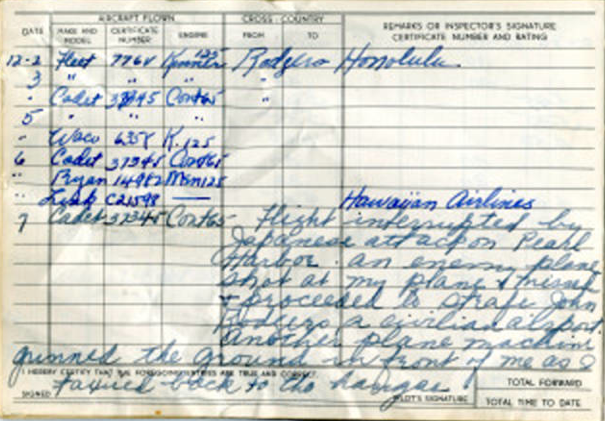 AIRCRAFT FLOWN CROSS-COUNTRY REMARKS OR INSPECTOR'S SIGNATURE
DATE MAKE AND MODEL CERTIFICATE NUMBER ENGINE FROM TO CERTIFICATE NUMBER AND RATING
12-2 Fleet 776V Kinner 125 Rodgers Honolulu
3 " " " "
" Cadet 37345 Cont65 "
5 " " "
" Waco 635Y K.125
6 Cadet 37345 Cont65
" Ryan 14982 Men125
" Link C21598 — Hawaiian Airlines
7 Cadet 37345 Cont65 Flight interrupted by
Japanese attack on Pearl
Harbor. an enemy plane
shot at my plane & missed
& proceeded to strafe John
Rodgers a civilian airport.
Another plane machine
gunned the ground in front of me as I
I HEREBY CERTIFY THAT THE FOREGOING ENTRIES ARE TRUE AND CORRECT. TOTAL FORWARD
taxied back to the hangar
SIGNED PILOT'S SIGNATURE TOTAL TIME TO DATE